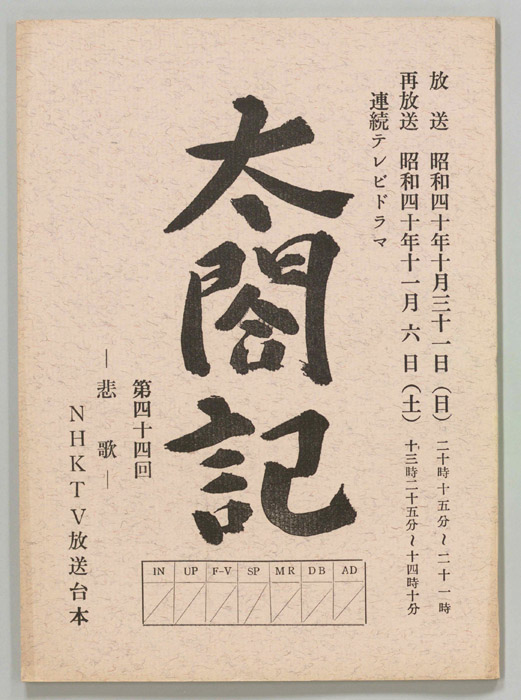 放送 昭和四十年十月三十一日（日） 二十時十五分～二十一時
再放送 昭和四十年十一月六日（土） 十三時二十五分～十四時十分
連続テレビドラマ
太閤記
第四十四回
―悲歌―
NHKTV放送台本
IN UP F-V SP MR DB AD